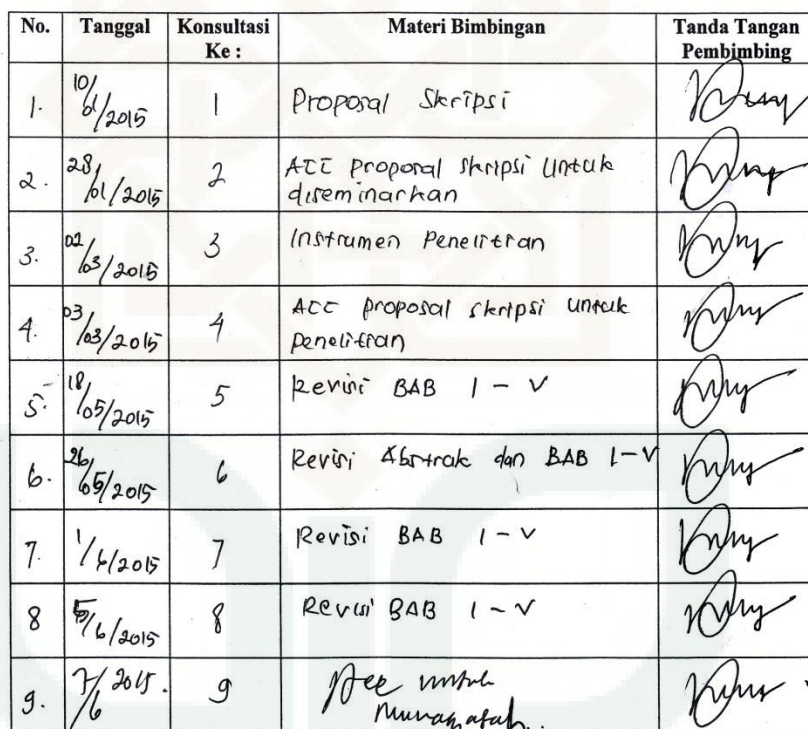 No. Tanggal Konsultasi Ke : Materi Bimbingan Tanda Tangan Pembimbing
1. 10/01/2015 1 Proposal Skripsi
2. 28/01/2015 2 ACC proposal skripsi untuk
diseminarkan
3. 02/03/2015 3 Instrumen Penelitian
4. 03/03/2015 4 ACC proposal skripsi untuk
penelitian
5. 18/05/2015 5 Revisi BAB I - V
6. 26/05/2015 6 Revisi Abstrak dan BAB I-V
7. 1/6/2015 7 Revisi BAB I - V
8 5/6/2015 8 Revisi BAB I - V
9. 7/6 2015. 9 Acc untuk
Munaqasah.